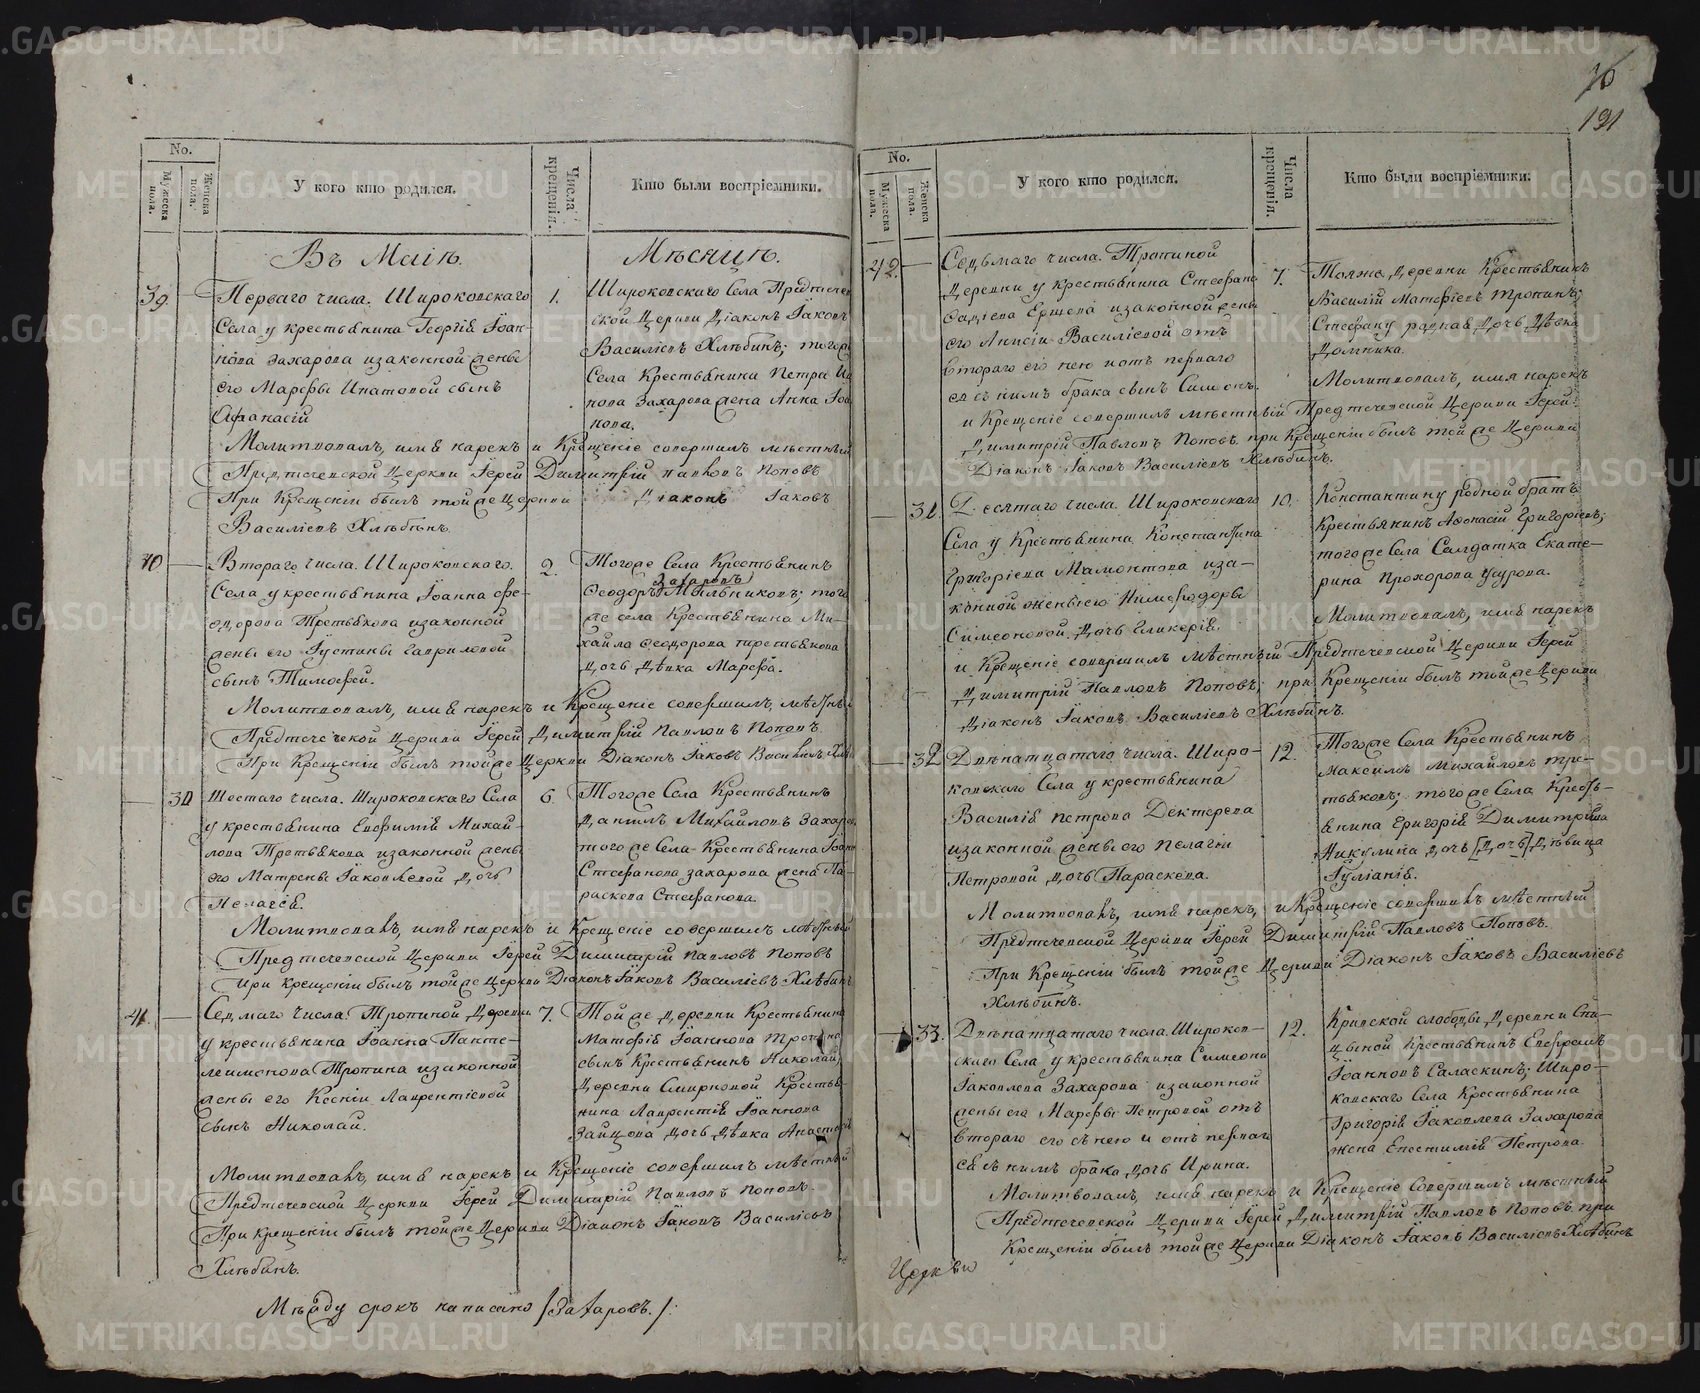 70
191
No.
Мужеска пола.
Женска пола.
У кого кто родился.
Числа крещенія.
Кто были воспріемники.
Въ Маіѣ
Мѣсяцѣ.
39
Перваго числа. Широковскаго
Села у крестьянина Георгія Іоан-
нова Захарова изаконной жены
его Марѳы Ипатовой сынъ
Афанасій
1.
Широковскаго Села Предтечен
ской Церкви Діаконъ Іаковъ
Василіевъ Хлѣбинъ; тогоже
Села Крестьянина Петра
нова Захарова жена Анна Іоа
нова.
Молитвовалъ, имя нарекъ и Крещеніе совершилъ мѣстный
Предтеченской Церкви Іерей Димитрій Павловъ Поповъ
При Крещеніи былъ тойже Церкви Діаконъ Іаковъ
Василіевъ Хлѣбинъ.
40.
Втораго числа. Широковскаго
Села у крестьянина Іоанна Фе-
одорова Третьякова изаконной
жены его Іустины Гавриловой
сынъ Тимофей.
2.
Тогоже Села Крестьянинъ
Захаровъ
Феодоръ Мѣльниковъ; того
же села Крестьянина Ми-
хайла Феодорова третьякова
дочь дѣвка Марѳа.
Молитвовалъ, имя нарекъ и Крещеніе совершилъ, мѣстный
Предтеченской Церкви Іерей Димитрій Павловъ Поповъ
При Крещеніи былъ тойже Церкви Діаконъ Іаковъ Василіевъ
30
Шестаго числа. Широковскаго Села
у крестьянина Евфимія Михай-
лова Третьякова изаконной жены
его Матрены Іаковлевой дочь
Пелагія.
6.
Тогоже Села Крестьянинъ
Даніилъ Михайловъ Захаровъ
тогоже Села Крестьянина Іоанна
Стефанова захарова жена Па-
раскева Стефанова.
Молитвовалъ, имя нарекъ и Крещеніе совершилъ мѣстный
Предтеченской Церкви Іерей Димитрій Павловъ Поповъ
При крещеніи былъ тойже Церкви Діаконъ Іаковъ Василіевъ Хлѣбинъ
41.
Седмаго числа. Тропиной Деревни
у крестьянина Іоанна Панте-
леимонова Тропина изаконной
жены его Ксеніи Лаврентіевой
сынъ Николай.
7.
Тойже деревни Крестьянина
Матфія Іоаннова Тропина
сынъ Крестьянинъ Николай;
деревни Смирновой Крестья-
нина Лаврентія Іоаннова
Зайцова дочь дѣвка
Молитвовалъ, имя нарекъ и Крещеніе совершилъ мѣстный
Предтеченской Церкви Іерей Димитрій Павловъ Поповъ.
При крещеніи былъ тойже Церкви Діаконъ Іаковъ Василіевъ
Хлѣбинъ.
Между срокъ написано /Захаровъ./:
No.
Мужеска пола.
Женска пола.
У кого кто родился.
Числа крещенія.
Кто были воспріемники.
42.
Седьмаго числа. Тропиной
деревни у крестьянина Стефана
Ершова изаконной жены
его Анисіи Василіевой отъ
втораго его нею иотъ перваго
ея съ нимъ брака сынъ Симеонъ.
7.
Тояже деревни Крестьянинъ
Василій Матфіевъ Тропинъ;
Стефану родная дочь дѣвка
Домника.
Молитвовалъ, имя нарекъ
и Крещеніе совершилъ мѣстный Предтеченской Церкви Іерей
Димитрій Павловъ Поповъ при Крещеніи былъ тойже Церкви
Діаконъ Іаковъ Василіевъ Хлѣбинъ.
31.
Десятаго числа. Широковскаго
Села у Крестьянина Константина
Григоріева Мамонтова иза-
конной жены его Нимфодоры
Симеоновой дочь Гликерія.
10.
Константину родной братъ
Крестьянинъ Афонасій Григоріевъ;
тогоже Села Салдатка Екате-
рина Прохорова
Молитвовалъ, имя нарекъ
и Крещеніе совершилъ мѣстный Предтеченской Церкви Іерей
Димитрій Павловъ Поповъ; при Крещеніи былъ тойже Церкви
Діаконъ Іаковъ Василіевъ Хлѣбинъ.
32
Двѣнатцатаго числа. Широ-
ковскаго Села у крестьянина
Василія Петрова Дектерева
изаконной жены его Пелагіи
Петровой дочь Параскева.
12.
Тогоже Села Крестьянинъ
Максимъ Михайловъ тре-
тьяковъ; тогоже Села Кресть-
янина Григорія Димитріева
Никулина дочь [дочь] дѣвица
Іуліанія.
Молитвовалъ, имя нарекъ, и Крещеніе совершилъ мѣстный
Предтеченской Церкви Іерей Димитрій Павловъ Поповъ.
При Крещеніи былъ тойже Церкви Діаконъ Іаковъ Василіевъ
Хлѣбинъ.
33.
Двѣнатцатаго числа. Широков-
скаго Села у крестьянина Симеона
Іаковлева Захарова изаконной
жены его Марѳы Петровой отъ
втораго его съ нею и отъ перваго
ея съ нимъ брака дочь Ирина.
12.
Кривской слободы деревни Спи-
цыной Крестьянинъ Евфремъ
Іоанновъ Саласкинъ; Широ-
ковскаго Села Крестьянина
Григорія Іаковлева Захарова
жена Евстимія Петрова
Молитвовалъ, имя нарекъ и Крещеніе Совершилъ мѣстный
Предтеченской Церкви Іерей Димитрій Павловъ Поповъ. при
Крещеніи былъ тойже Церкви Діаконъ Іаковъ Василіевъ Хлѣбинъ
Церкви
METRIKI.GASO-URAL.RU